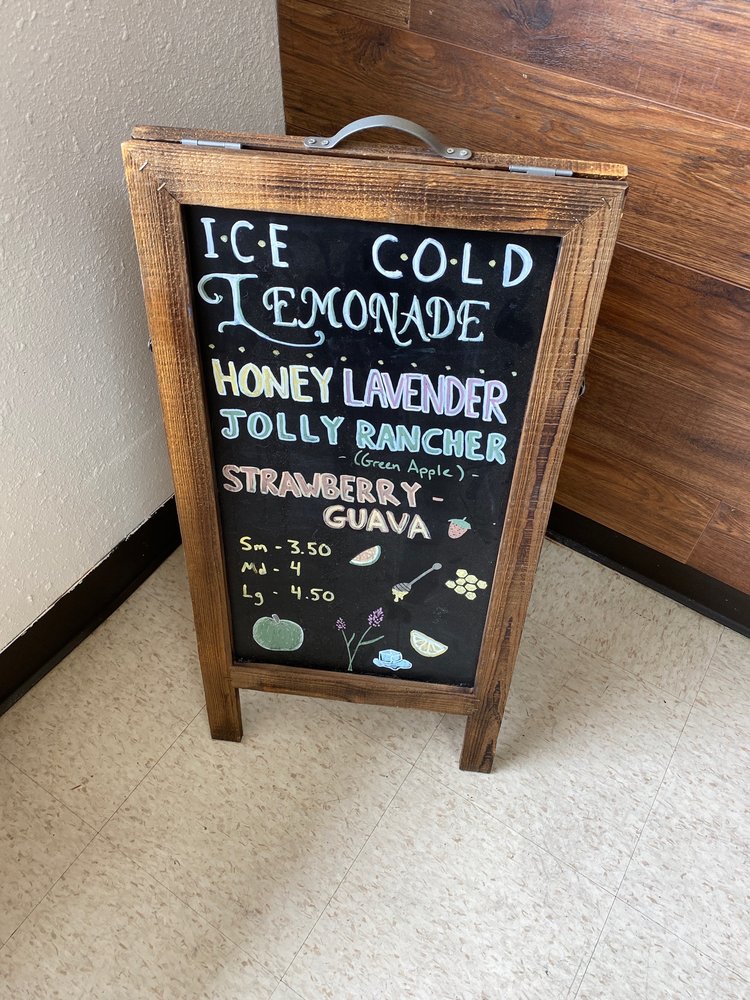 I·C·E C·O·L·D
LEMONADE
HONEY LAVENDER
JOLLY RANCHER
- (Green Apple) -
STRAWBERRY -
GUAVA
Sm - 3.50
Md - 4
Lg - 4.50